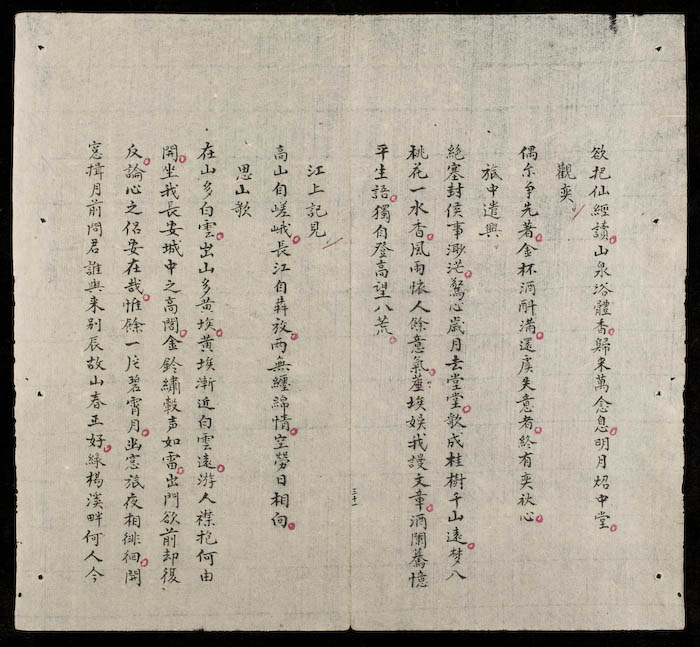 欲把仙經讀山泉浴體香歸来萬念息明月炤中堂
觀奕
偶尔爭先著金杯酒酧滿還虞失意者終有奕秋心
旅中遣興
絶塞封侯事渺茫驚心歲月去堂堂歌成桂樹千山遠梦入
桃花一水香風雨懐人餘意氣塵埃娱我謾文章酒闌舊憶
平生語獨自登高望八荒
江上記見
高山自嵯峨長江自犇放两無纏綿情空勞日相向
思山歌
在山多白雲出山多黄埃黄埃漸近白雲遠游人襟抱何由
開坐我長安城中之高閣金鈴繡轂声如雷出門欲前却復
反論心之侣安在哉惟餘一片碧霄月幽窓旅夜相徘徊開
窓揖月前問君誰與来别辰故山春正好緑楊溪畔何人今
三十一